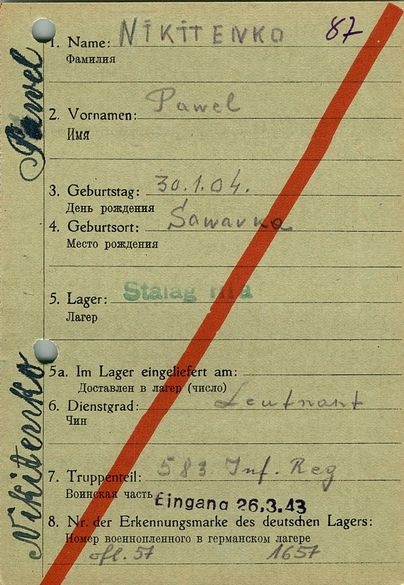 1. Name: NIKITENKO 87
Фамилия
2. Vornamen: Pawel
Имя
3. Geburtstag: 30.1.04.
День рождения
4. Geburtsort: Sawarka
Место рождения
5. Lager: Stalag
Лагер
5a. Im Lager eingeliefert am:
Доставлен в лагер (число)
6. Dienstgrad: Leutnant
Чин
7. Truppenteil: 583. Inf. Reg
Воинская часть Eingang 26.3.43
8. Nr. der Erkennungsmarke des deutschen Lagers:
Номер военнопленного в германском лагере
ofl. 57 1657
Nikitenko Pawel